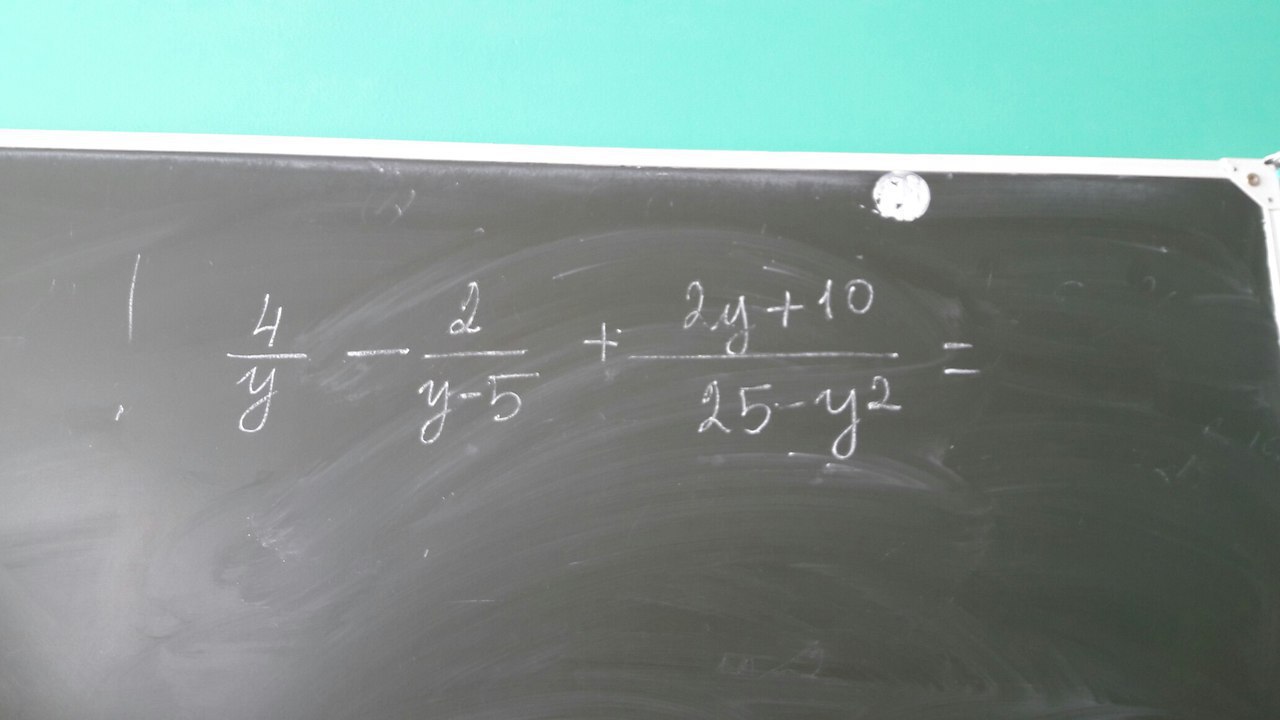 4/y - 2/(y-5) + (2y+10)/(25-y²) =